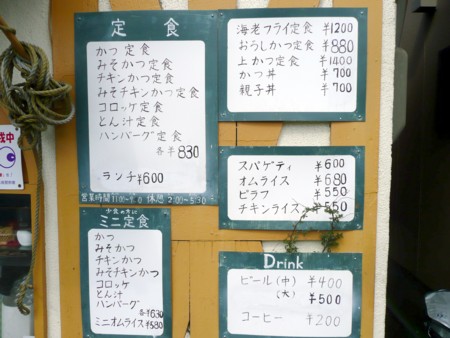 定食
かつ定食
みそかつ定食
チキンかつ定食
みそチキンかつ定食
コロッケ定食
とん汁定食
ハンバーグ定食
各¥830
ランチ¥600
海老フライ定食 ¥1200
おろしかつ定食 ¥880
上かつ定食 ¥1400
かつ丼 ¥700
親子丼 ¥700
スパゲティ ¥600
オムライス ¥680
ピラフ ¥550
チキンライス ¥550
ミニ定食
かつ
みそかつ
チキンかつ
みそチキンかつ
コロッケ
とん汁
ハンバーグ
各¥630
ミニオムライス¥580
Drink
ビール(中) ¥400
(大) ¥500
コーヒー ¥200